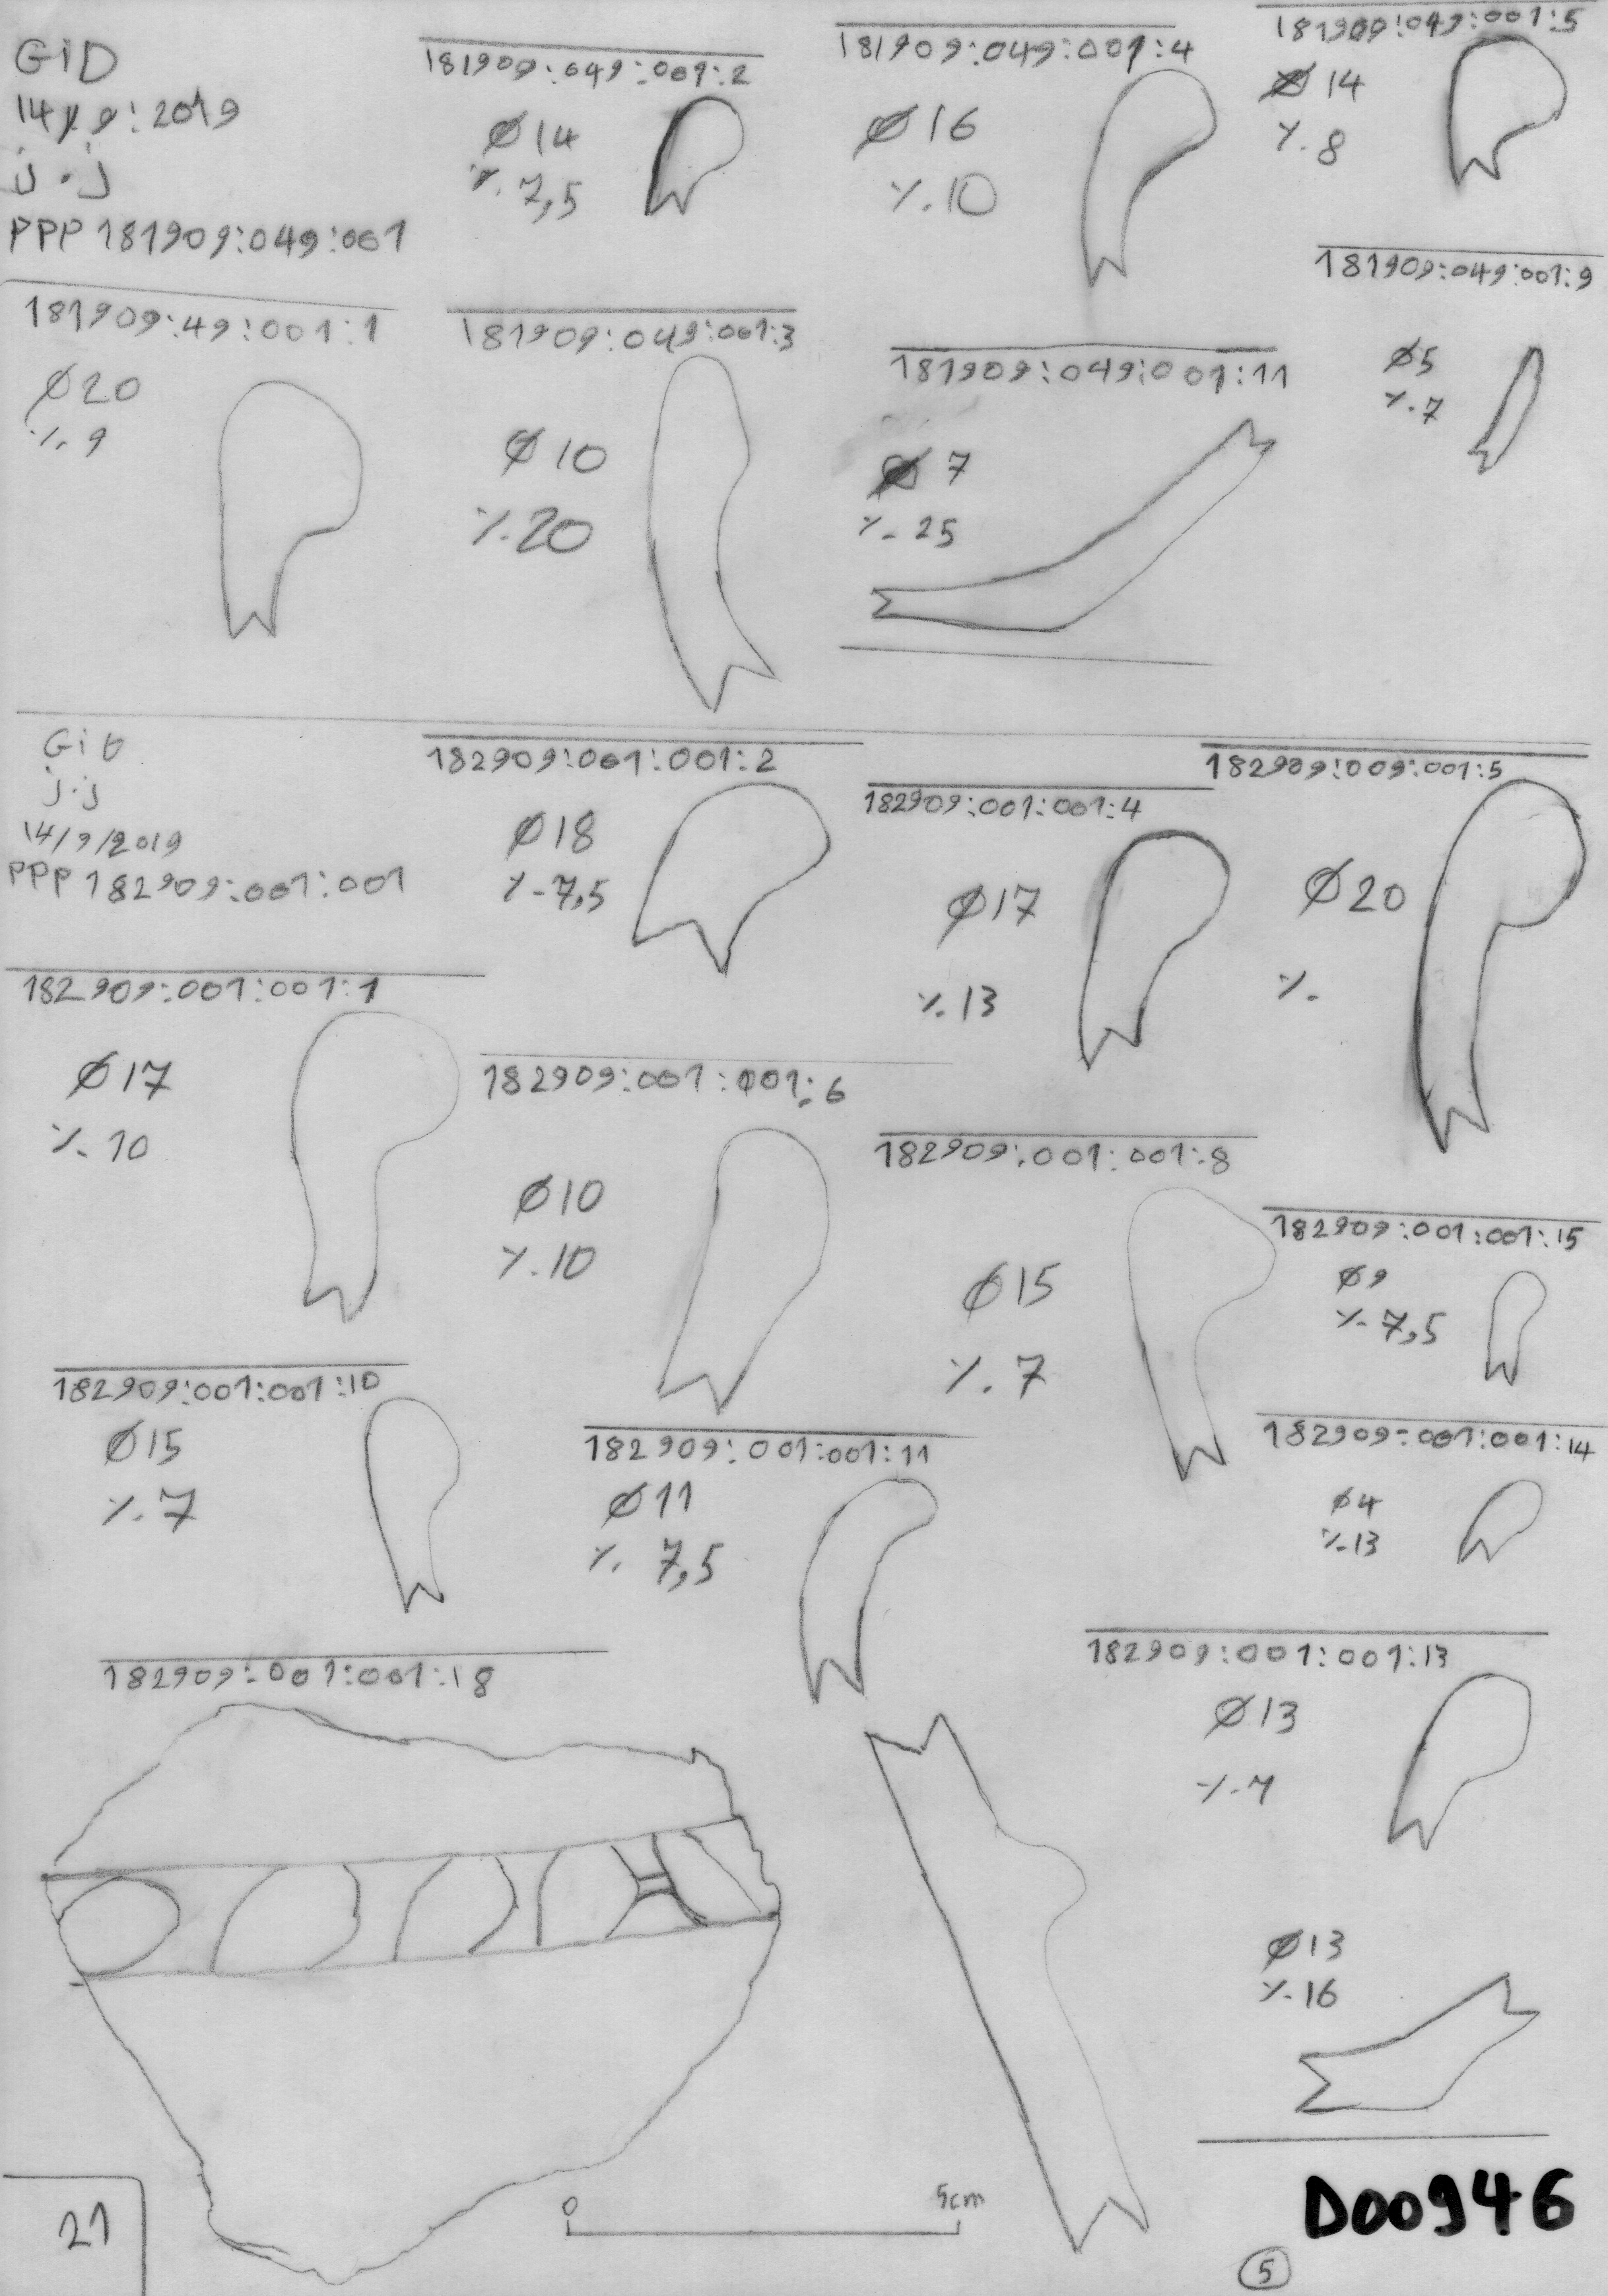 GiD
14/9:2019
j.j
PPP 181909:049:001
181909:49:001:1
Ø20
%. 9
181909:049:001:2
Ø14
%. 7,5
181909:049:001:3
Ø10
%.20
181909:049:001:4
Ø16
%.10
181909:049:001:5
Ø14
%.8
181909:049:001:9
Ø5
%.7
181909:049:001:11
Ø 7
%- 25
j.j
14/9/2019
PPP 182909:001:001
182909:001:001:1
Ø17
%- 10
182909:001:001:2
Ø18
%-7,5
182909:001:001:4
Ø17
%. 13
182909:009:001:5
Ø20
%.
182909:001:001:6
Ø10
%.10
182909:001:001:8
Ø15
%. 7
182909:001:001:15
Ø9
%- 7,5
182909:001:001:10
Ø15
%.7
182909:001:001:11
Ø11
%. 7,5
182909-001:001:14
Ø4
%-13
182909:001:001:13
Ø13
%-7
182909-001:001:18
Ø13
%-16
0
5cm
21
D00946
5